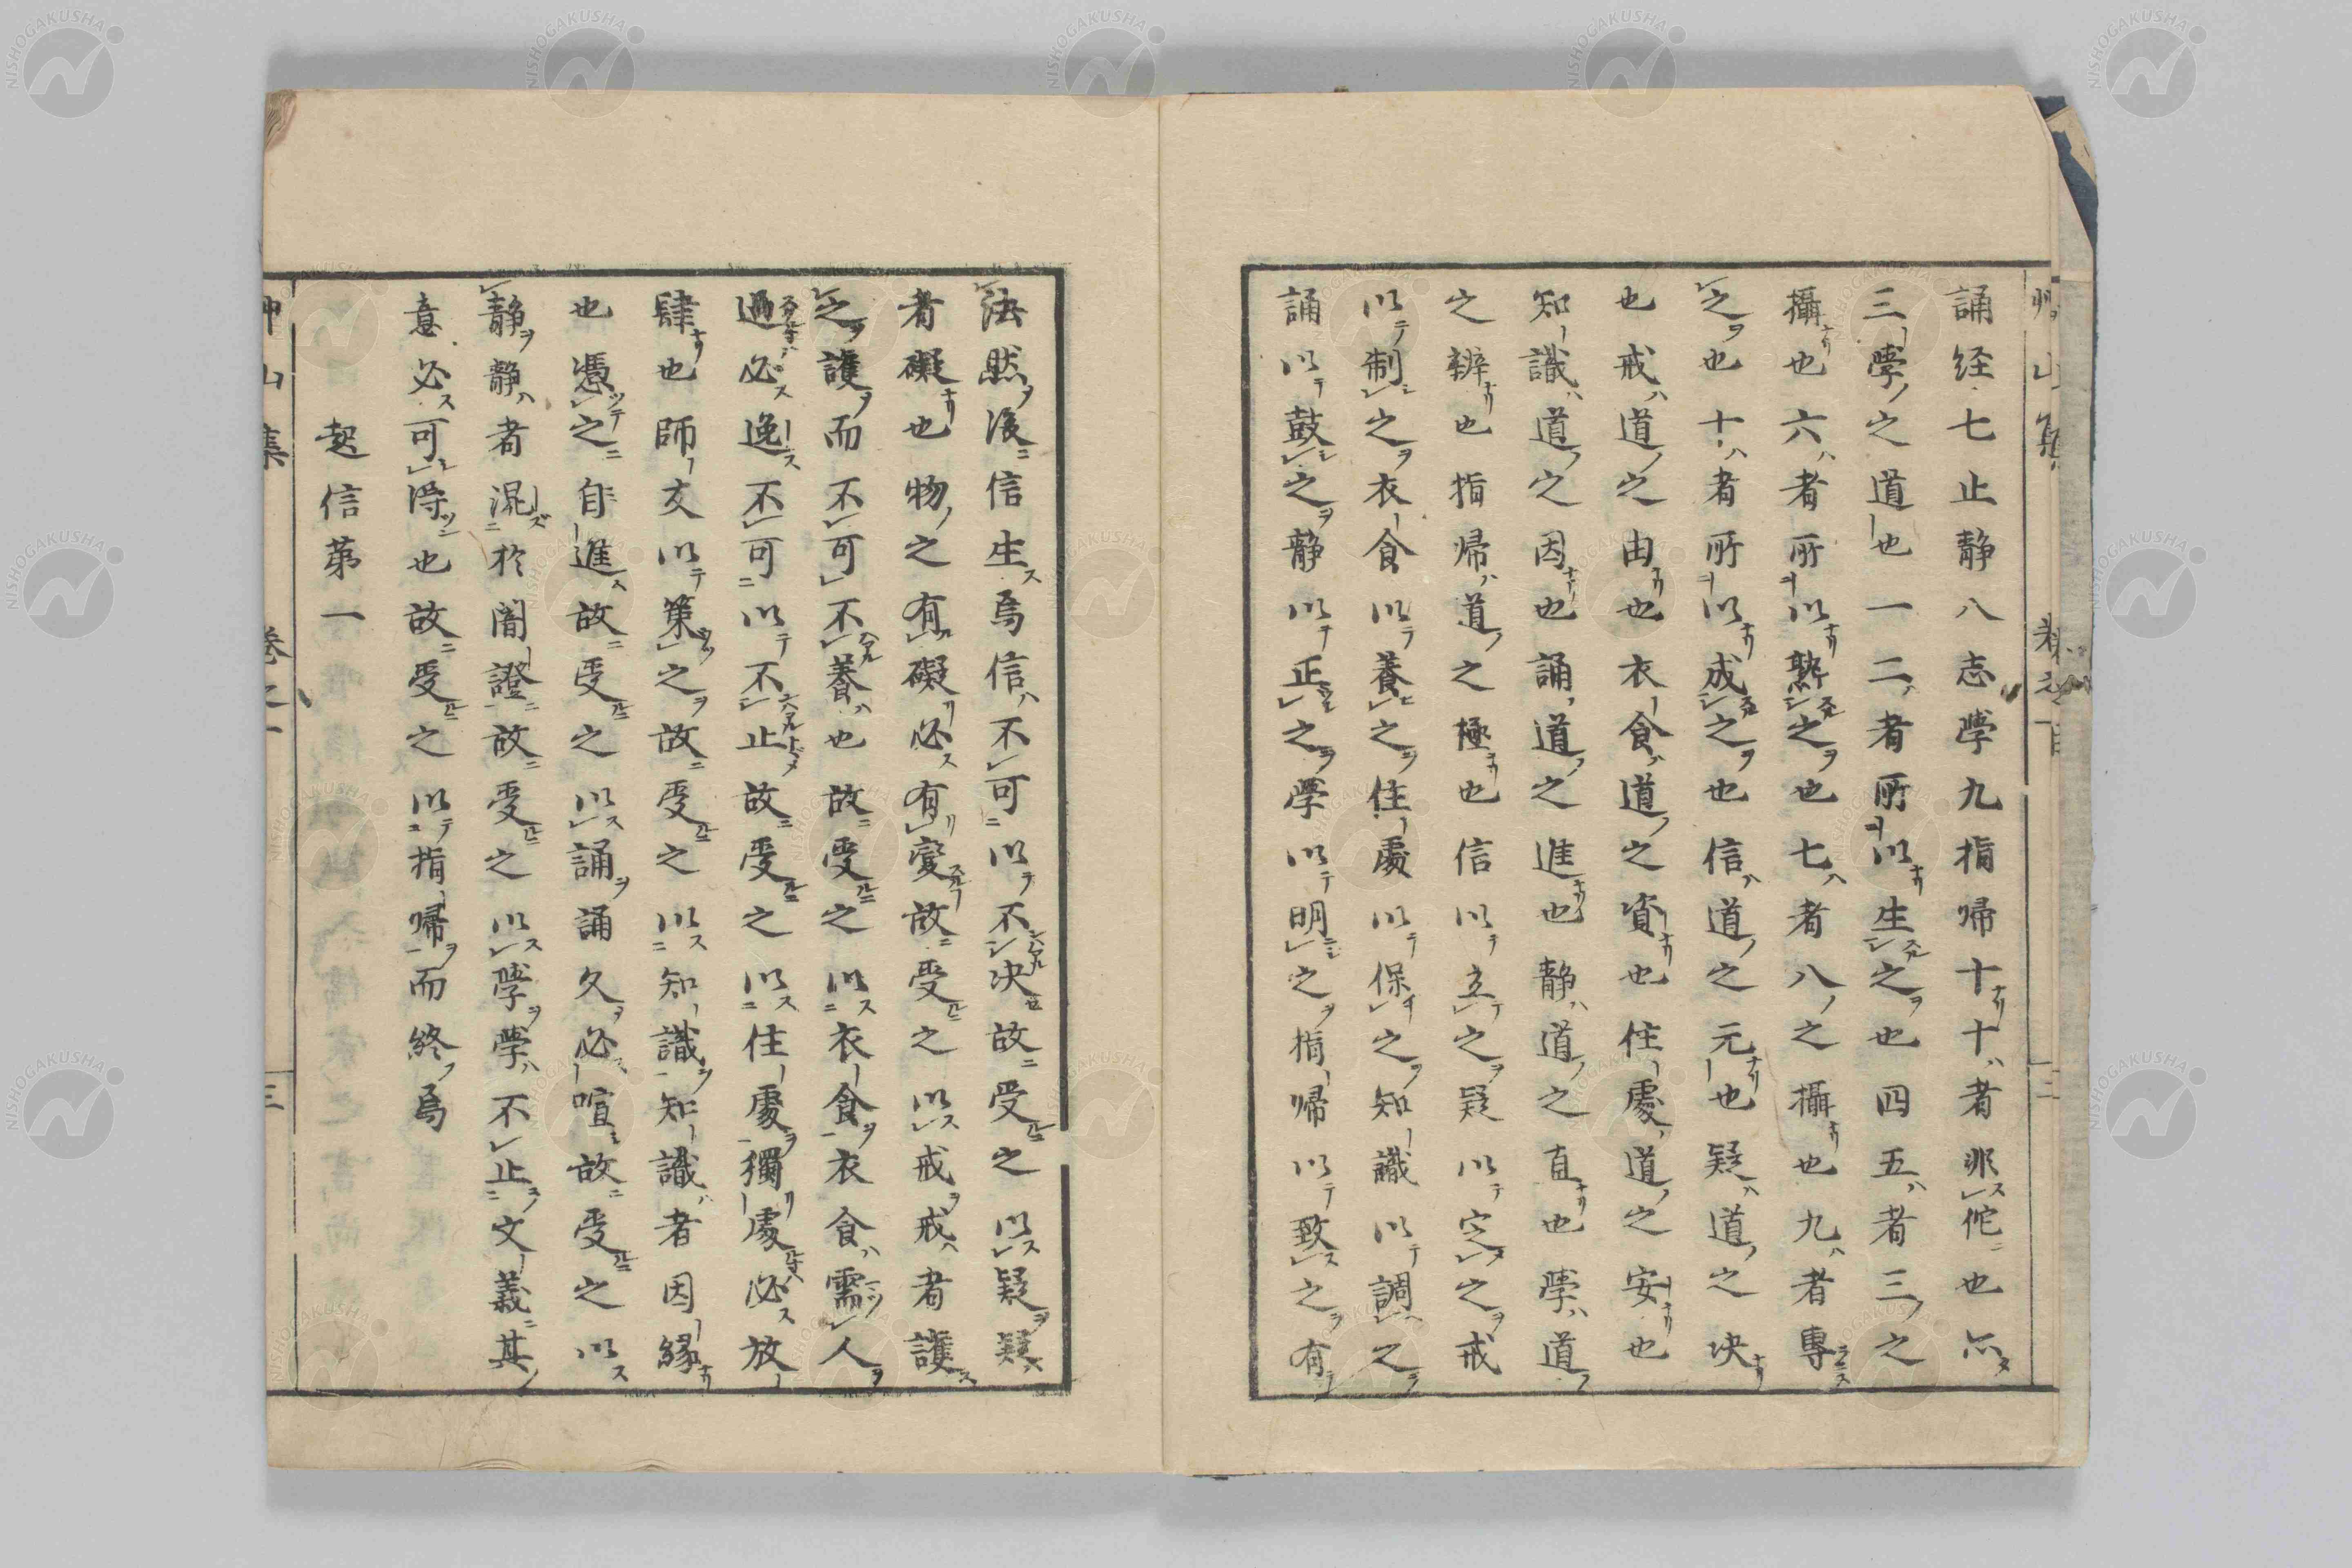 誦経七止静八志學九指帰十十者非佗也亦
三學之道也一二者所以生之也四五者三之
攝也六者所以熟之也七者八之攝也九者專
之也十者所以成之也信道之元也疑道之决
也戒道之由也衣食道之資也住處道之安也
知識道之因也誦道之進也静道之直也學道
之辨也指帰道之極也信以立之疑以定之戒
以制之衣食以養之住處以保之知識以調之
誦以鼓之静以正之學以明之指帰以致之有
法然後信生焉信不可以不决故受之以疑疑
者礙也物之有礙必有變故受之以戒戒者護
之護而不可不養也故受之以衣食衣食需人
過必逸不可以不止故受之以住處獨處必放
肆也師友以策之故受之以知識知識者因縁
也憑之自進故受之以誦誦久必喧故受之以
静静者混於闇證故受之以學學不止文義其
意必可得也故受之以指帰而終焉
起信第一
山集
三
NISHOGAKUSHA